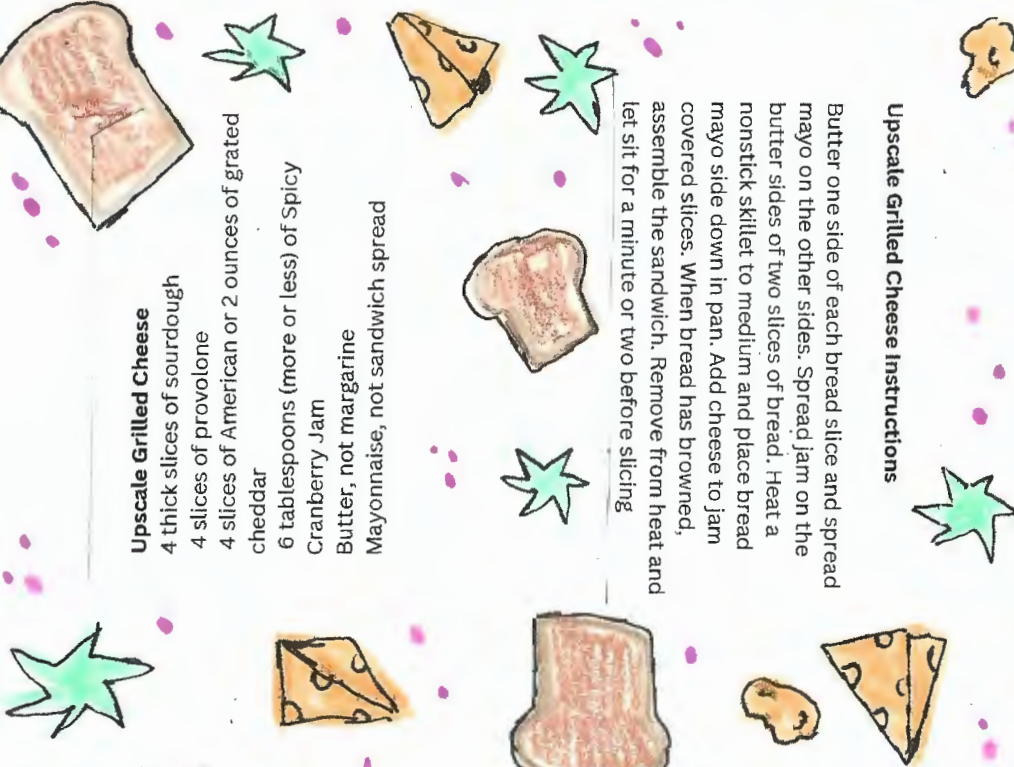 Upscale Grilled Cheese
4 thick slices of sourdough
4 slices of provolone
4 slices of American or 2 ounces of grated
cheddar
6 tablespoons (more or less) of Spicy
Cranberry Jam
Butter, not margarine
Mayonnaise, not sandwich spread
Upscale Grilled Cheese Instructions
Butter one side of each bread slice and spread
mayo on the other sides. Spread jam on the
butter sides of two slices of bread. Heat a
nonstick skillet to medium and place bread
mayo side down in pan. Add cheese to jam
covered slices. When bread has browned,
assemble the sandwich. Remove from heat and
let sit for a minute or two before slicing